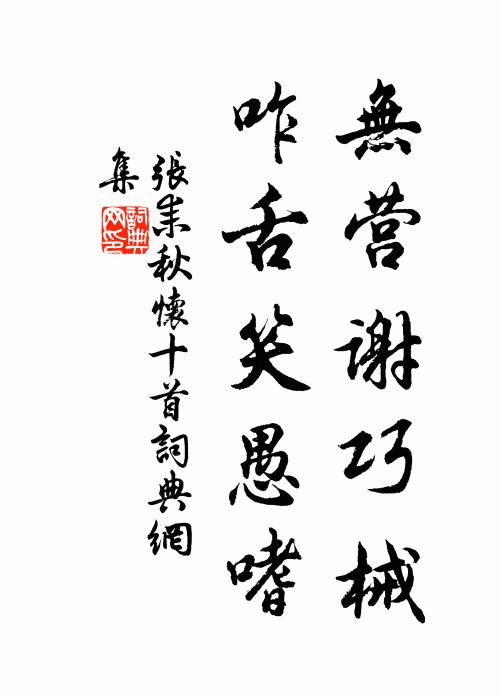 無营谢巧械
咋舌笑愚嗜
張耒秋懷十首詞典網
集
詞典
网印